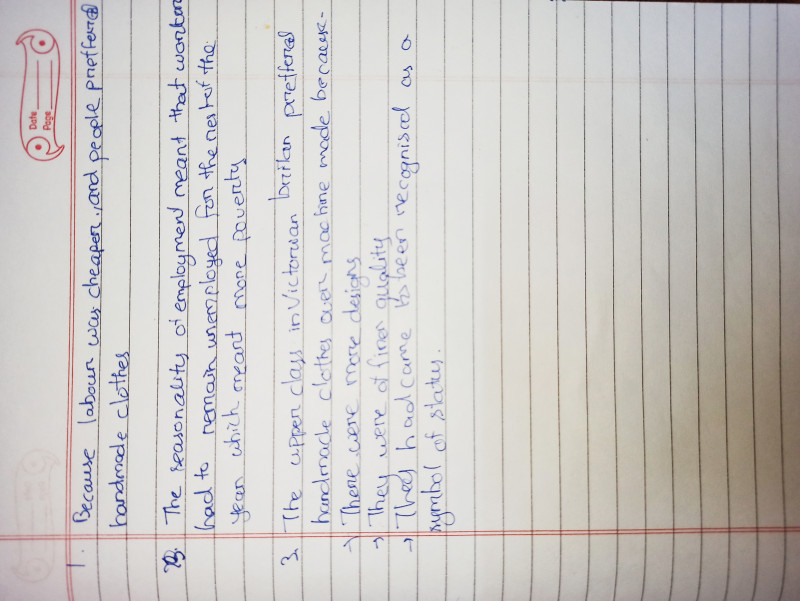 Date
Page
1. Because labour was cheaper, and people preffered
handmade clothes
2. The seasonality of employment meant that workers
had to remain unemployed for the rest of the
year which meant more poverty
3. The upper class in Victorian britian preffered
handmade clothes over machine made because-
→ There were more designs
→ They were of finer quality
→ They had came to been recognised as a
symbol of status.